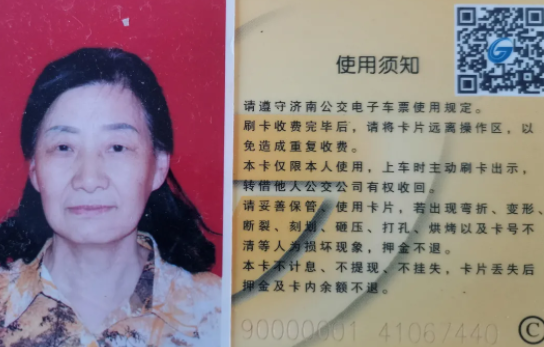 使用须知
请遵守济南公交电子车票使用规定。
刷卡收费完毕后，请将卡片远离操作区，以
免造成重复收费。
本卡仅限本人使用，上车时主动刷卡出示，
转借他人公交公司有权收回。
请妥善保管、使用卡片，若出现弯折、变形、
断裂、刻划、砸压、打孔、烘烤以及卡号不
清等人为损坏现象，押金不退。
本卡不计息、不提现、不挂失，卡片丢失后
押金及卡内余额不退。
90000001 41067440 ©